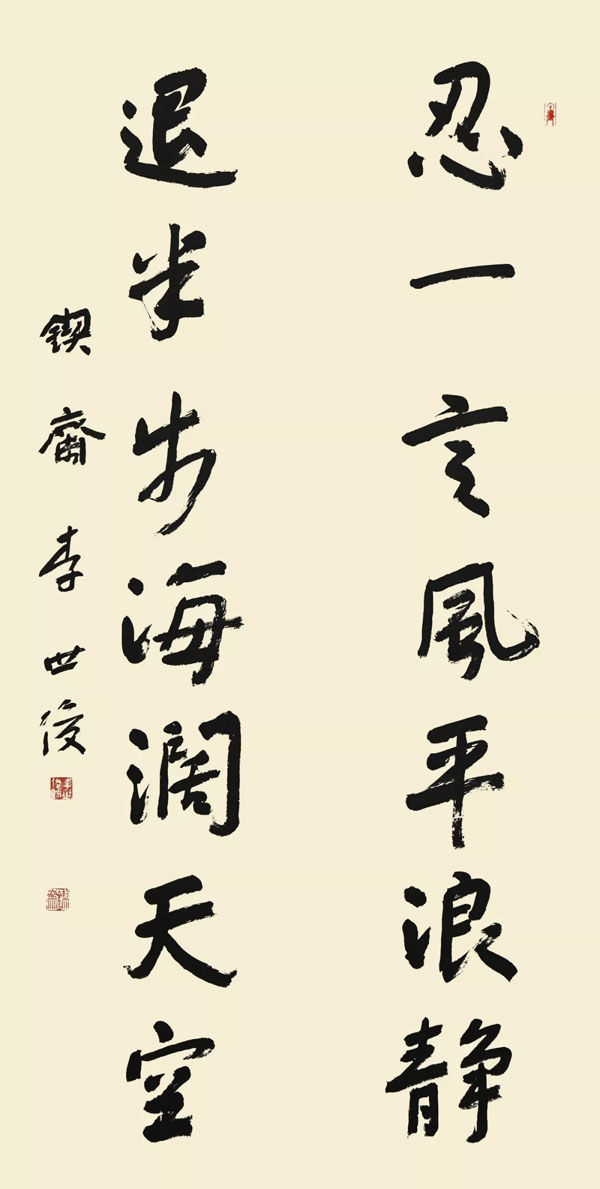 忍一言風平浪静
退半步海濶天空
鍥齋李世俊